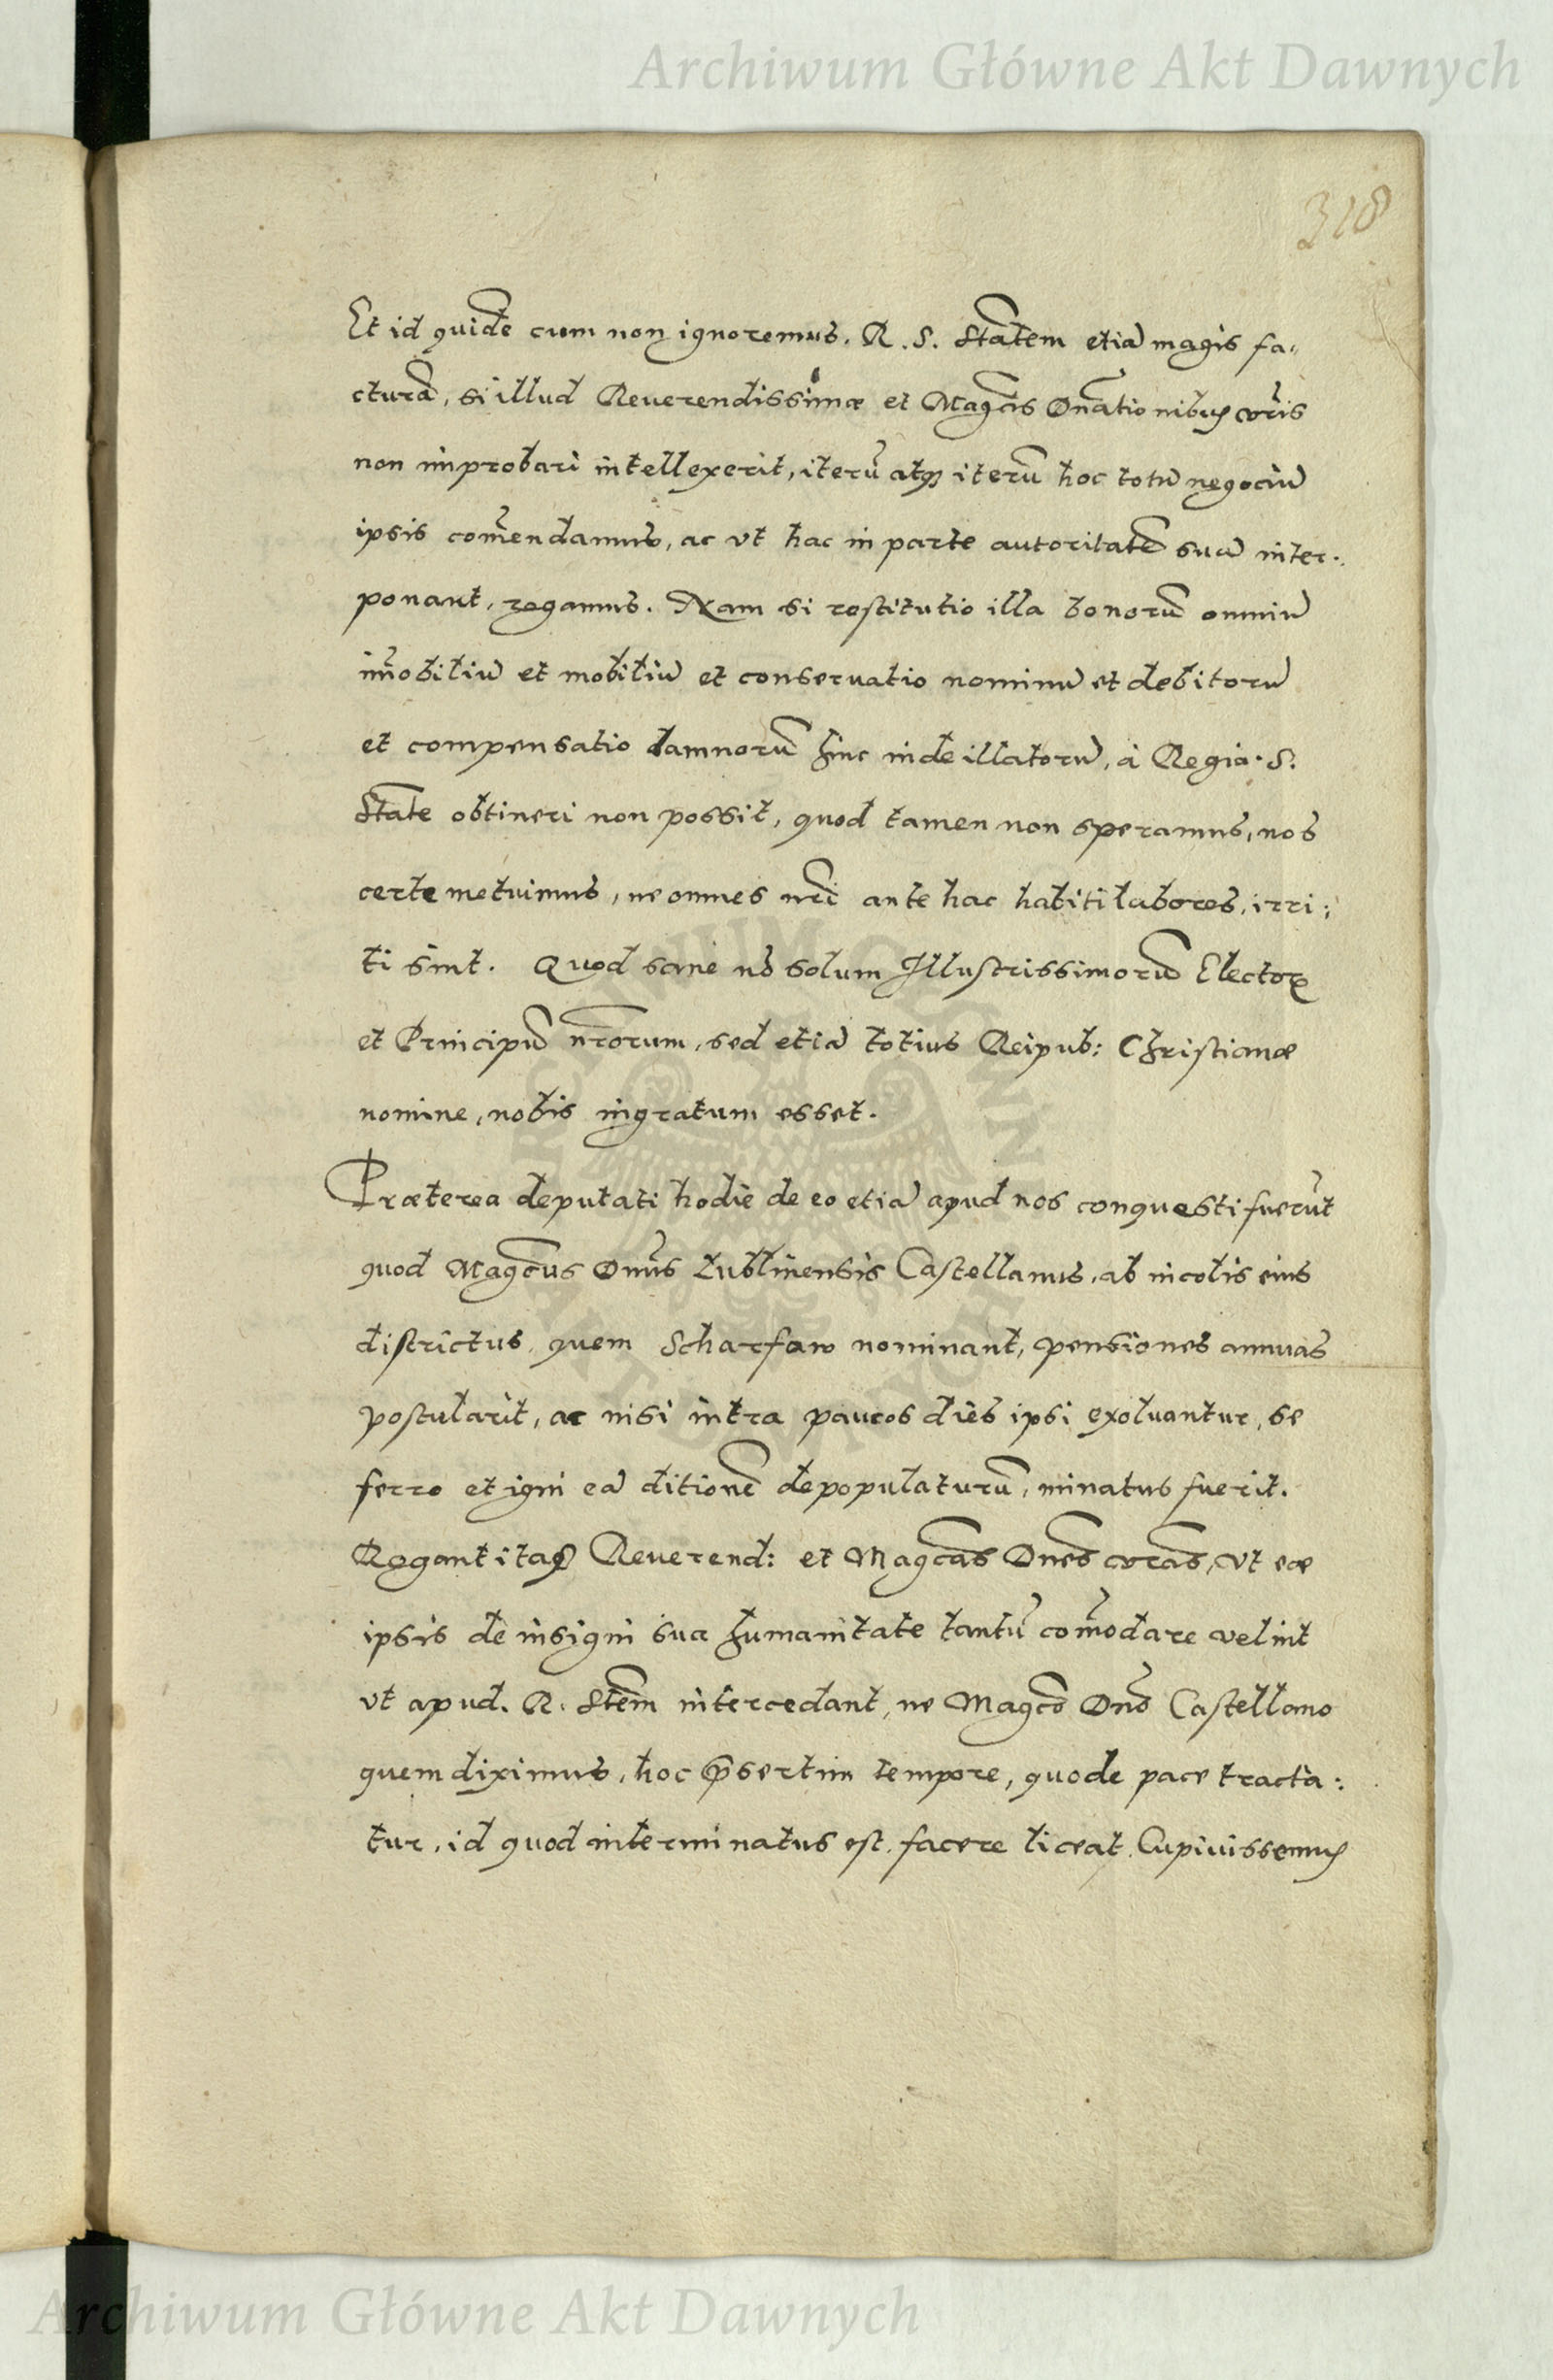 Archiwum Główne Akt Dawnych
318
Et id quidē cum non ignoremus. R. S. Statem etiā magis fa„
cturā, si illud Reuerendissimæ et Magcis Dnationibus vris
non improbari intellexerit, iterū atq̃ iterū hoc totū negociū
ipsis com̄endamus, ac vt hac in parte autoritatē suā inter„
ponant, rogamus. Nam si restitutio illa bonorū omniū
im̄obiliū et mobiliū et conseruatio nominū et debitorū
et compensatio damnorū hinc inde illatorū, à Regia. S.
State obtineri non possit, quod tamen non speramus, nos
certe metuimus, ne omnes nri ante hac habiti labores, irri:
ti sint. Quod sane nō solum Illustrissimorū Electorꝝ
et Principū nrorum, sed etiā totius Reipub: Christianæ
nomine, nobis ingratum esset.
Præterea deputati hodie de eo etiā apud nos conquesti fuerūt
quod Magcus Dnus Lublinensis Castellanus, ab incolis eius
districtus, quem Scharfaw nominant, pensiones annuas
postularit, ac nisi intra paucos dies ipsi exoluantur, se
ferro et igni eā ditionē depopulaturū, minatus fuerit.
Rogant itaq̃ Reuerend: et Magcas Dnes vras, vt eæ
ipsis de insigni sua humanitate tantū com̄odare velint
vt apud. R. Stem intercedant, ne Magco Dno Castellano
quem diximus, hoc p̄sertim tempore, quo de pace tracta:
tur, id quod interminatus est, facere liceat. Cupiuissemus
Archiwum Główne Akt Dawnych